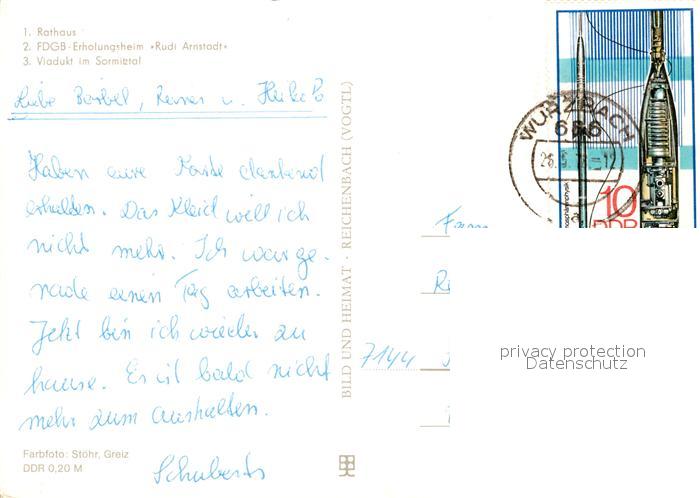 1. Rathaus
2. FDGB-Erholungsheim »Rudi Arnstadt«
3. Viadukt im Sormitztal
Liebe Bärbel, Reiner u. Heike
Haben eure Karte dankend
erhalten. Das Kleid will ich
nicht mehr. Ich war ge-
rade einen Tag arbeiten.
Jetzt bin ich wieder zu
hause. Es ist bald nicht
mehr zum aushalten.
Schuberts
Farbfoto: Stöhr, Greiz
DDR 0,20 M
BILD UND HEIMAT · REICHENBACH (VOGTL)
WURZBACH
686
10
DDR
Fam
7144
privacy protection
Datenschutz